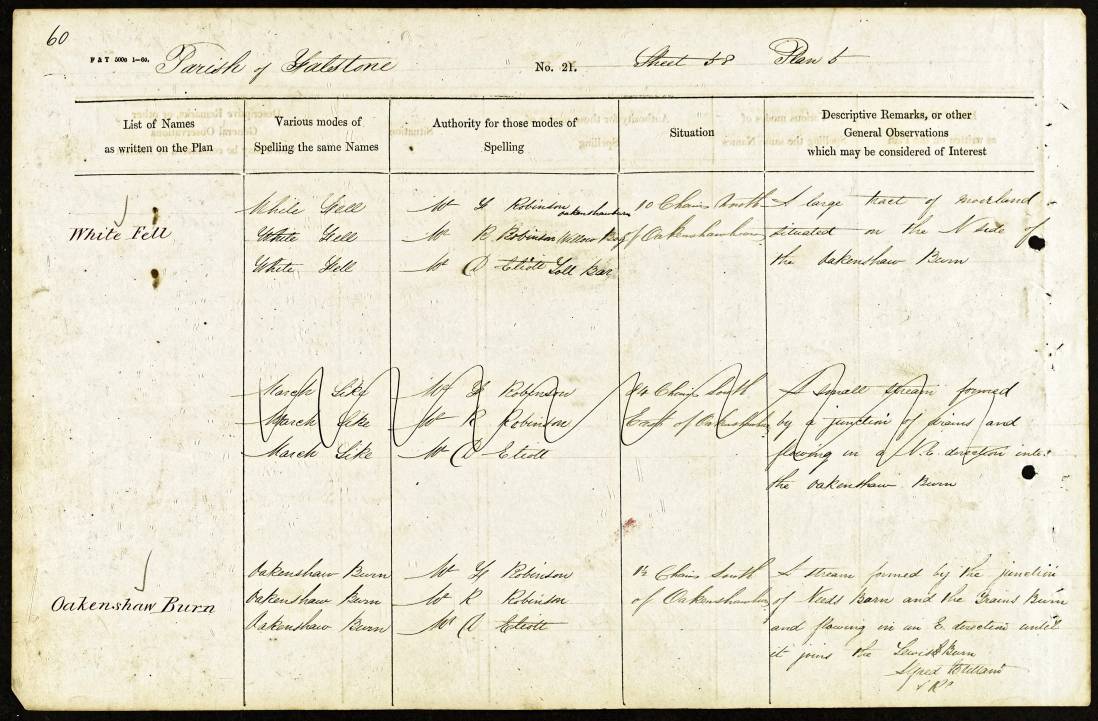 60
F & T 5000 1–60. Parish of Falstone No. 21. Sheet 58 Plan 5
List of Names
as written on the Plan
Various modes of
Spelling the same Names
Authority for those modes of
Spelling
Situation
Descriptive Remarks, or other
General Observations
which may be considered of Interest
White Fell
White Fell
White Fell
White Fell
Mr Robinson Oakenshawburn
Mr R Robinson Willow Bog
Mr D Eliott Toll Bar
10 Chains North
of Oakenshawburn
A large tract of moorland
situated on the N side of
the Oakenshaw Burn
March Sike
March Sike
March Sike
Mr Robinson
Mr R Robinson
Mr D Eliott
Chains South
East of
A small stream formed
by a junction of drains and
flowing in a N.E. direction into
the Oakenshaw Burn
Oakenshaw Burn
Oakenshaw Burn
Oakenshaw Burn
Oakenshaw Burn
Mr Robinson
Mr R Robinson
Mr D Eliott
Chains South
of
A stream formed by the junction
of Burn and the Grains Burn
and flowing in an E. direction until
it joins the Lewis Burn